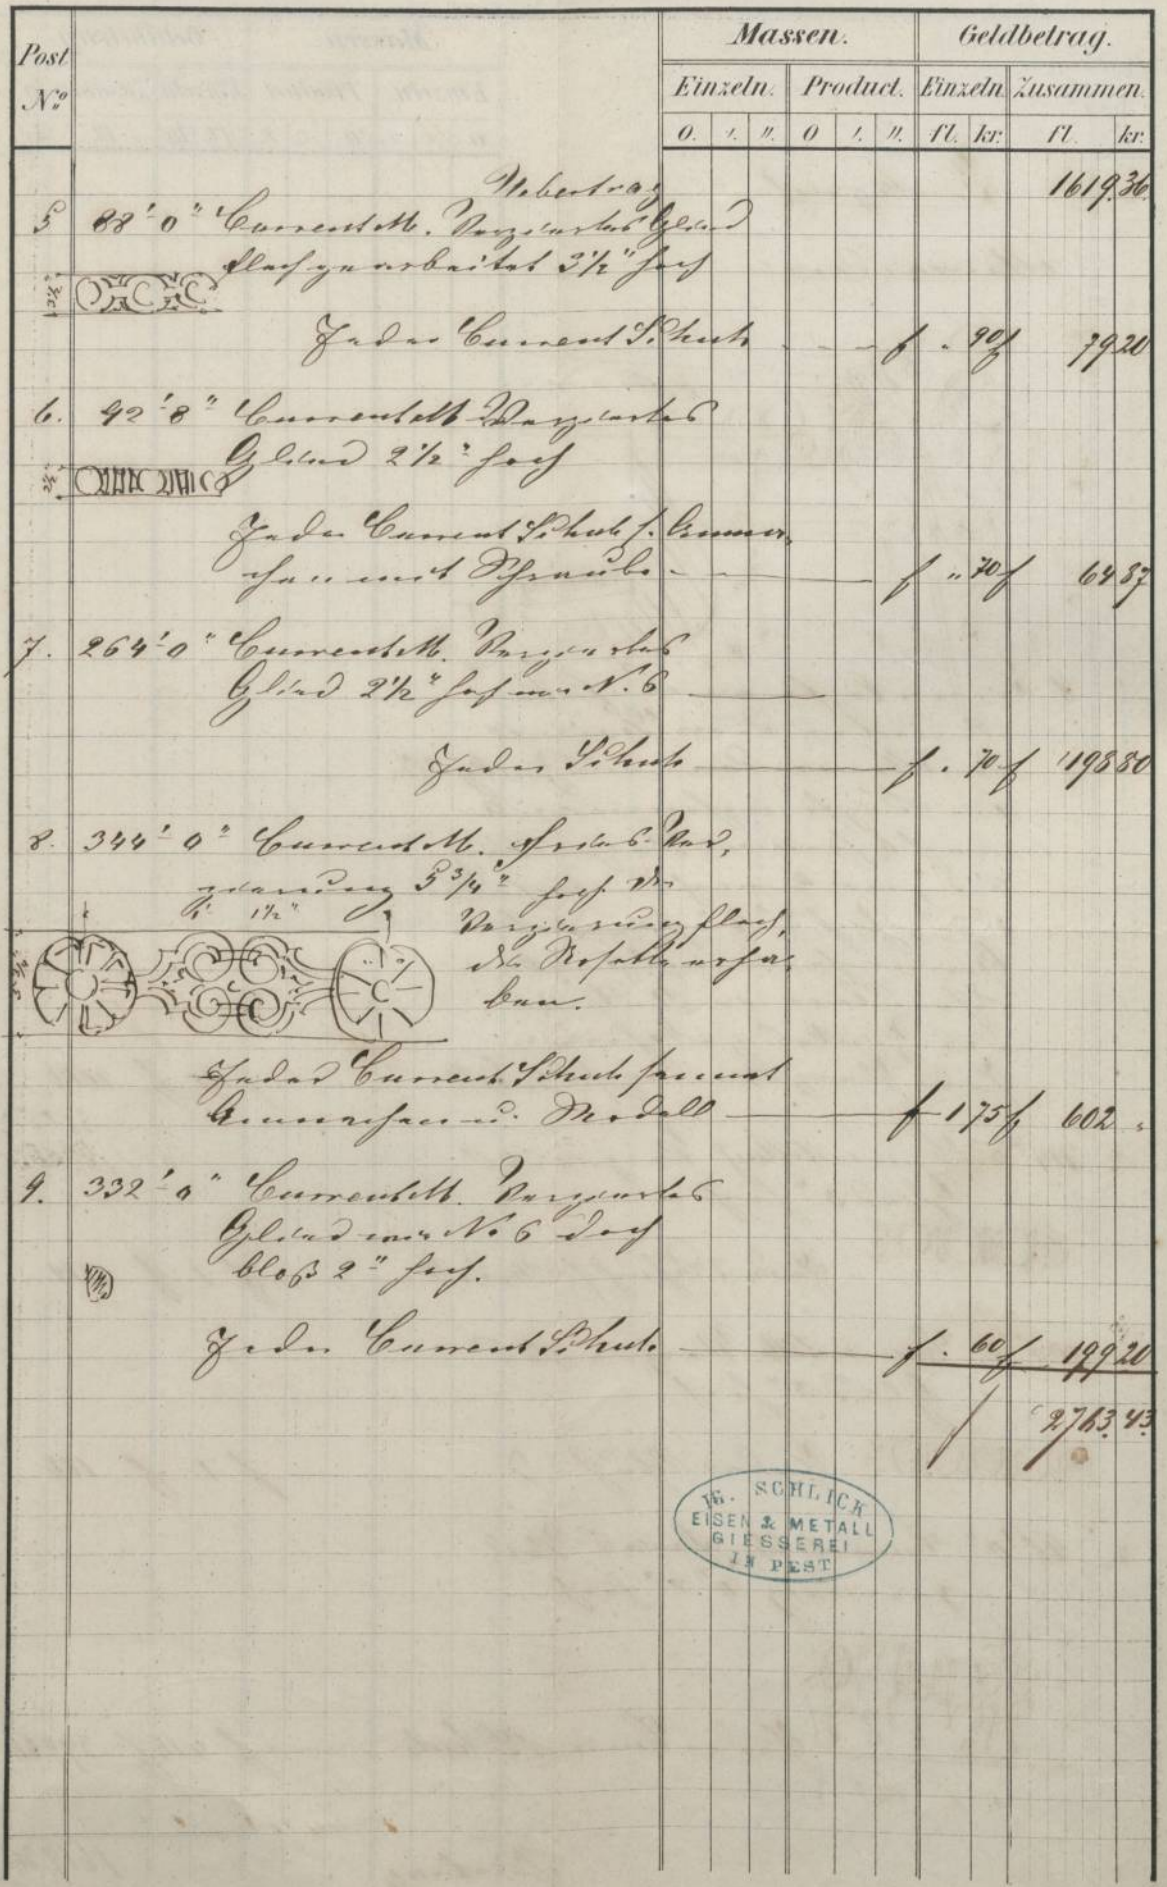 Post
No
Massen.
Geldbetrag.
Einzeln. Product. Einzeln. Zusammen.
0. ,. ,,. 0 ,. ,,. fl. kr. fl. kr.
Uebertrag 1619.36.
5 88'-0" Current M. Verziertes Glied
flach gearbeitet 3 1/2" hoch
3 1/2
Jeder Current Schuh f . 90 f 79 20
6. 92'-8" Current M Verziertes
Glied 2 1/2" hoch
Jeder Current Schuh s. Anma-
chen mit Schraube - f " 70 f 64 87
7. 264'-0" Current M. Verziertes
Glied 2 1/2" hoch wie N. 6
Jeder Schuh f . 70 f 198 80
8. 344'-0" Current M. Fries Ver-
zierung 5 3/4" hoch die
1 1/2"
Verzierung flach,
die Rosette erha-
ben.
Jeder Current Schuh sammt
Anmachen u. Modell f 1 75 f 602 "
9. 332'-0" Current M. Verziertes
Glied wie No 6 doch
bloß 2" hoch.
Jeder Current Schuh f . 60 f 199 20
2763.43.
IG. SCHLICK
EISEN & METALL
GIESSEREI
IN PEST